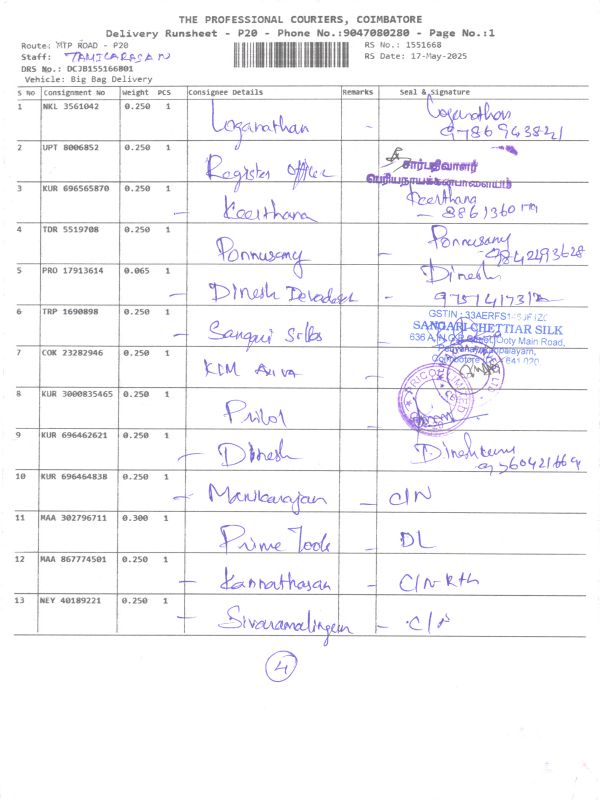 THE PROFESSIONAL COURIERS, COIMBATORE
Delivery Runsheet - P20 - Phone No.:9047080280 - Page No.:1
Route: MTP ROAD - P20 RS No.: 1551668
Staff: TAMILARASAN RS Date: 17-May-2025
DRS No.: DCJB155166801
Vehicle: Big Bag Delivery
S No Consignment No Weight PCS Consignee Details Remarks Seal & Signature
1 NKL 3561042 0.250 1 Loganathan - Loganathan
9786943821
2 UPT 8006852 0.250 1 Register Officer சார்பதிவாளர்
பெரியநாயக்கன்பாளையம்
3 KUR 696565870 0.250 1 - Keerthana Keerthana
4 TDR 5519708 0.250 1 Ponnusamy - Ponnusamy
9842193628
5 PRO 17913614 0.065 1 - Dinesh - Dinesh
6 TRP 1690898 0.250 1 - Sangari Silks GSTIN : 33AERFS
SANGARI CHETTIAR SILK
Ooty Main Road,
7 COK 23282946 0.250 1 KLM
8 KUR 3000835465 0.250 1 Pricol PRICOL LIMITED
9 KUR 696462621 0.250 1 - Dinesh
10 KUR 696464838 0.250 1 - - C/N
11 MAA 302796711 0.300 1 Prime Tools - DL
12 MAA 867774501 0.250 1 - Kannathasan - C/N Rth
13 NEY 40189221 0.250 1 - Sivaramalingam - C/N
4